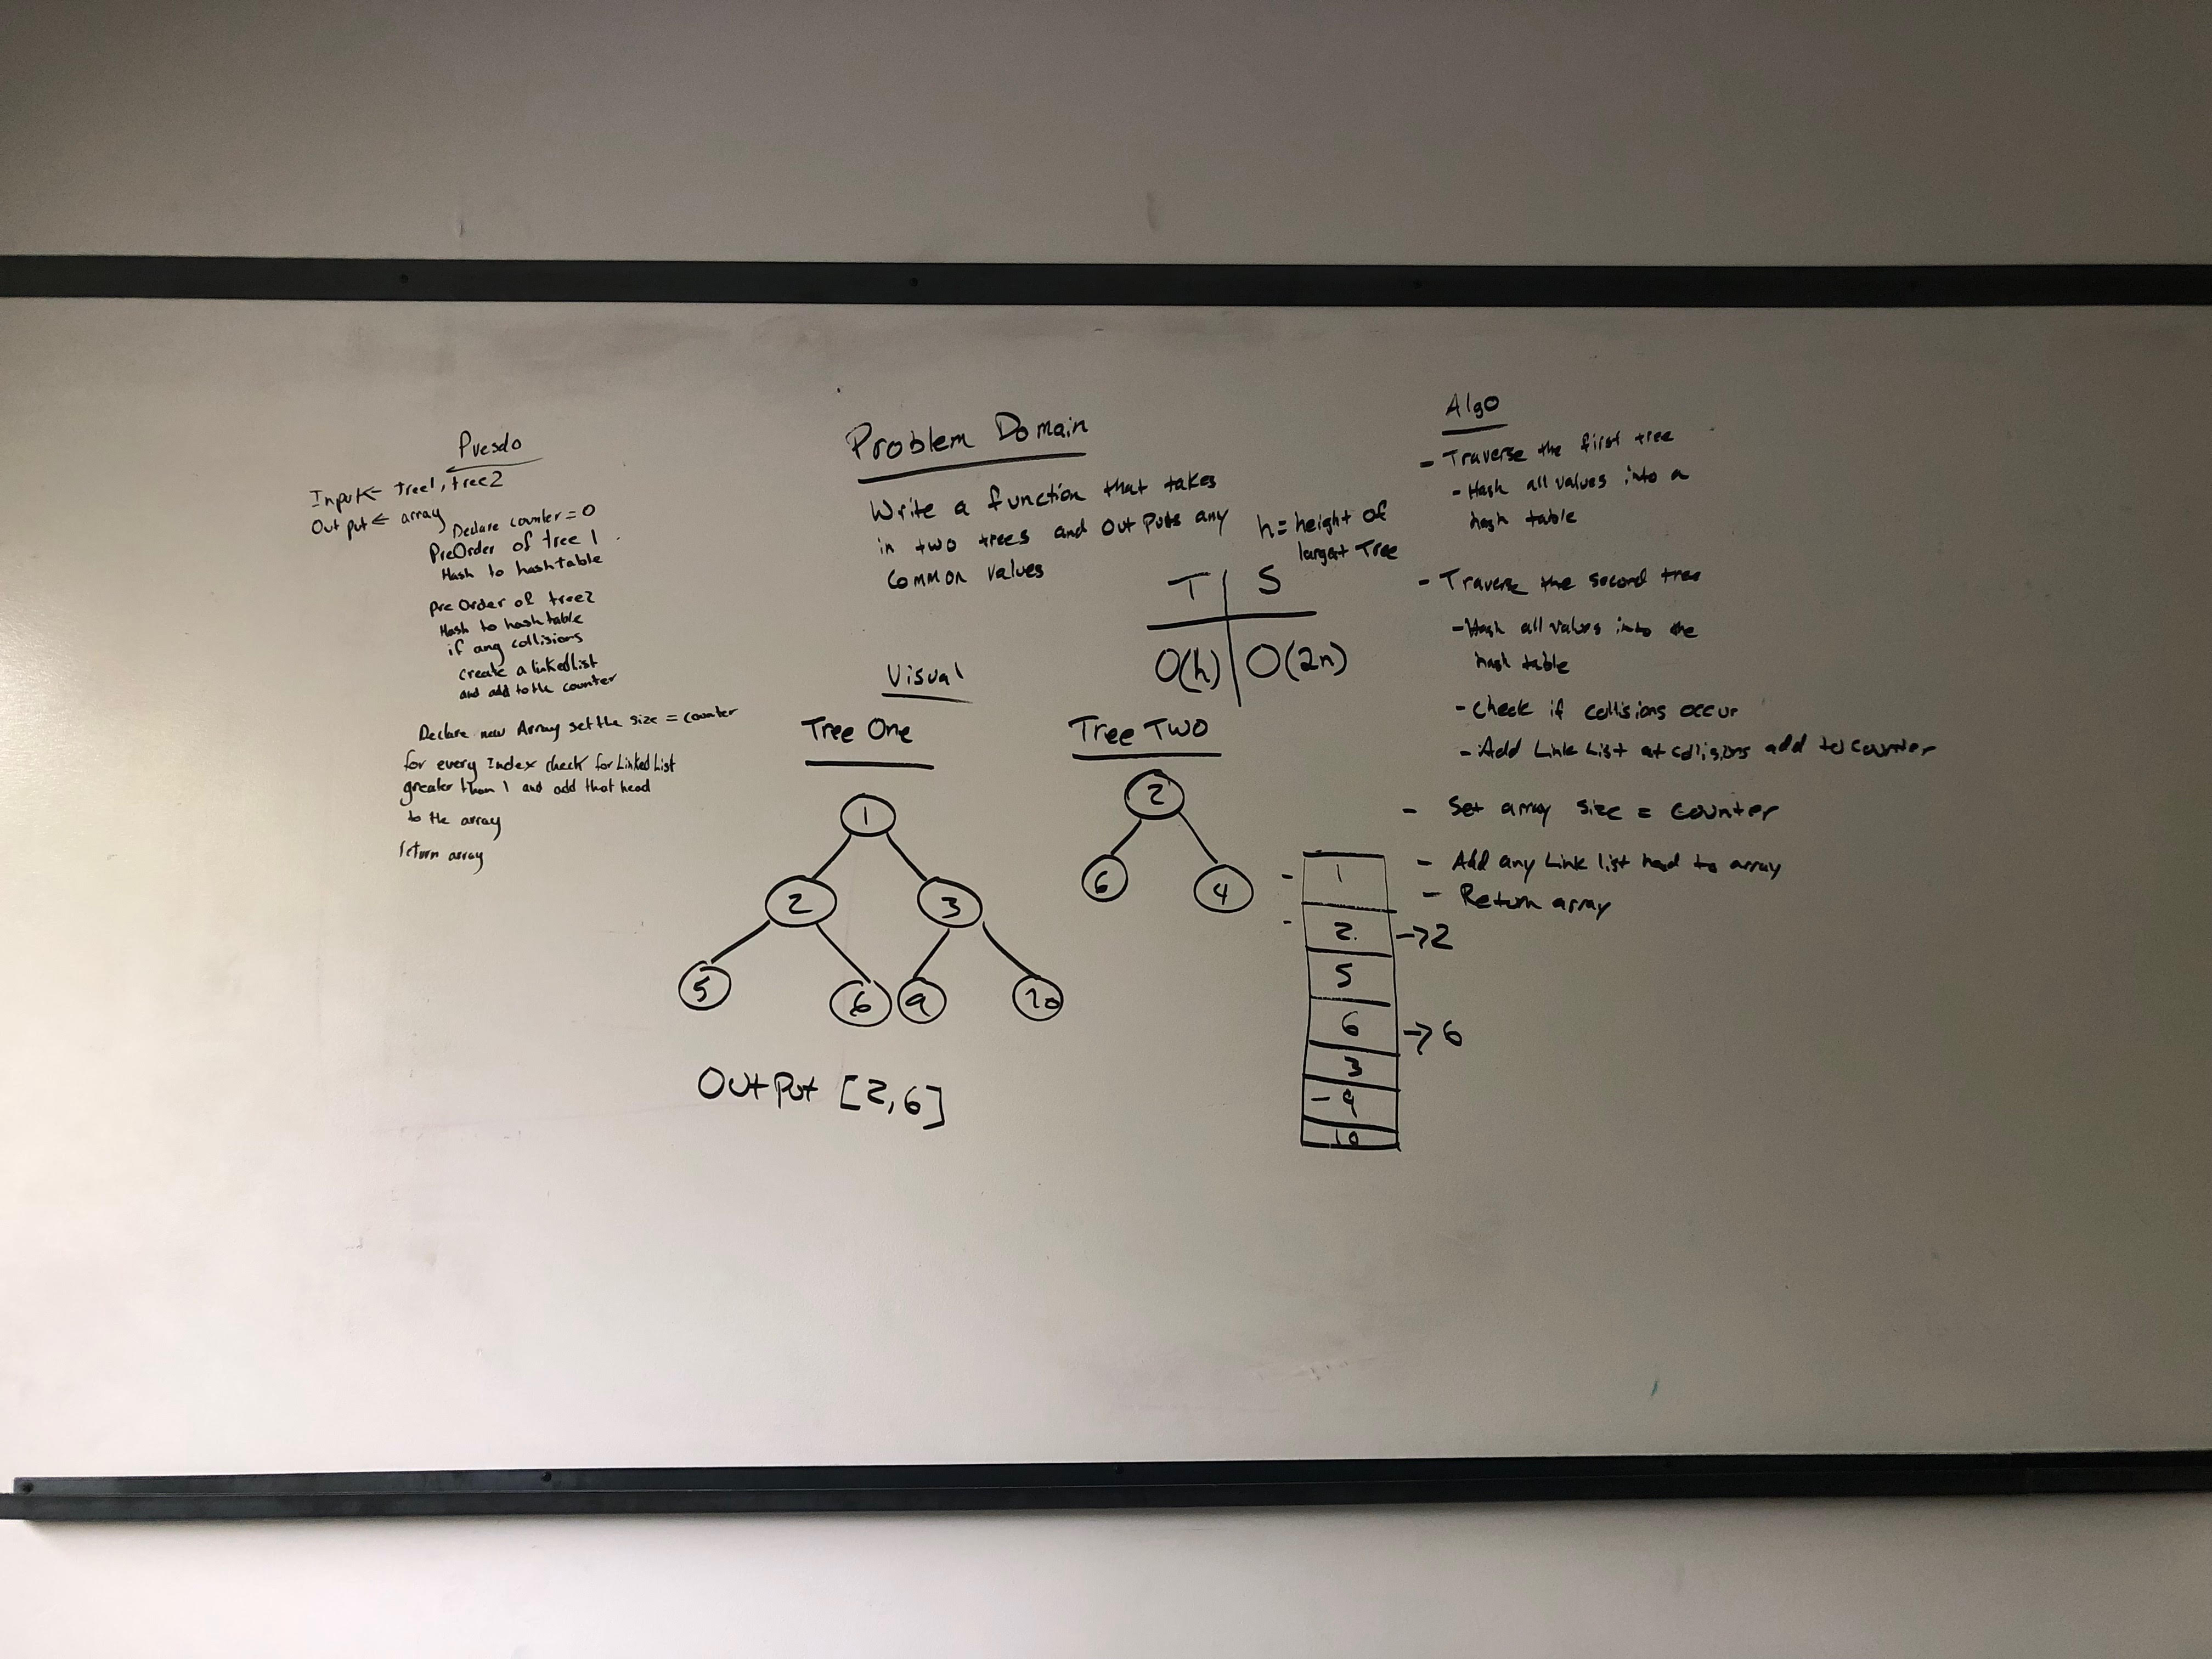 Puesdo
Input ← tree1, tree2
Output ← array
Declare counter = 0
PreOrder of tree 1
Hash to hashtable
pre Order of tree2
Hash to hash table
if any collisions
create a linked list
and add to the counter
Declare new Array set the size = counter
for every Index check for Linked List
greater than 1 and add that head
to the array
return array
Problem Domain
Write a function that takes
in two trees and outputs any
common values
h = height of
largest Tree
T | S
O(h) | O(2n)
Visual
Tree One
1
2 3
5 6 9 10
Tree Two
2
6 4
Output [2,6]
1
2 → 2
5
6 → 6
3
- 9
10
Algo
- Traverse the first tree
- Hash all values into a
hash table
- Traverse the second tree
- Hash all values into the
hash table
- Check if collisions occur
- Add Link List at collisions add to counter
- Set array size = counter
- Add any Link list head to array
- Return array